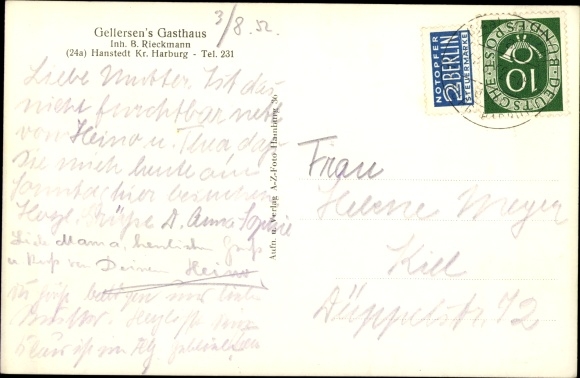 Gellersen's Gasthaus
Inh. B. Rieckmann
(24a) Hanstedt Kr. Harburg - Tel. 231
3/8.52.
Liebe Mutter. Ist das
nicht furchtbar nett
von Heino u. Thea daß
sie mich heute am
Sonntag hier besuchen
Herzl. Grüße D. Anna Sophie
Liebe Mama, herzlichen Gruß
u Kuß von Deinem Heino
Mutter.
Aufn. u. Verlag A-Z-Foto Hamburg 36
NOTOPFER
2 BERLIN
STEUERMARKE
DEUTSCHE BUNDESPOST
10
Frau
Helene Meyer
Kiel
Düppelstr. 72